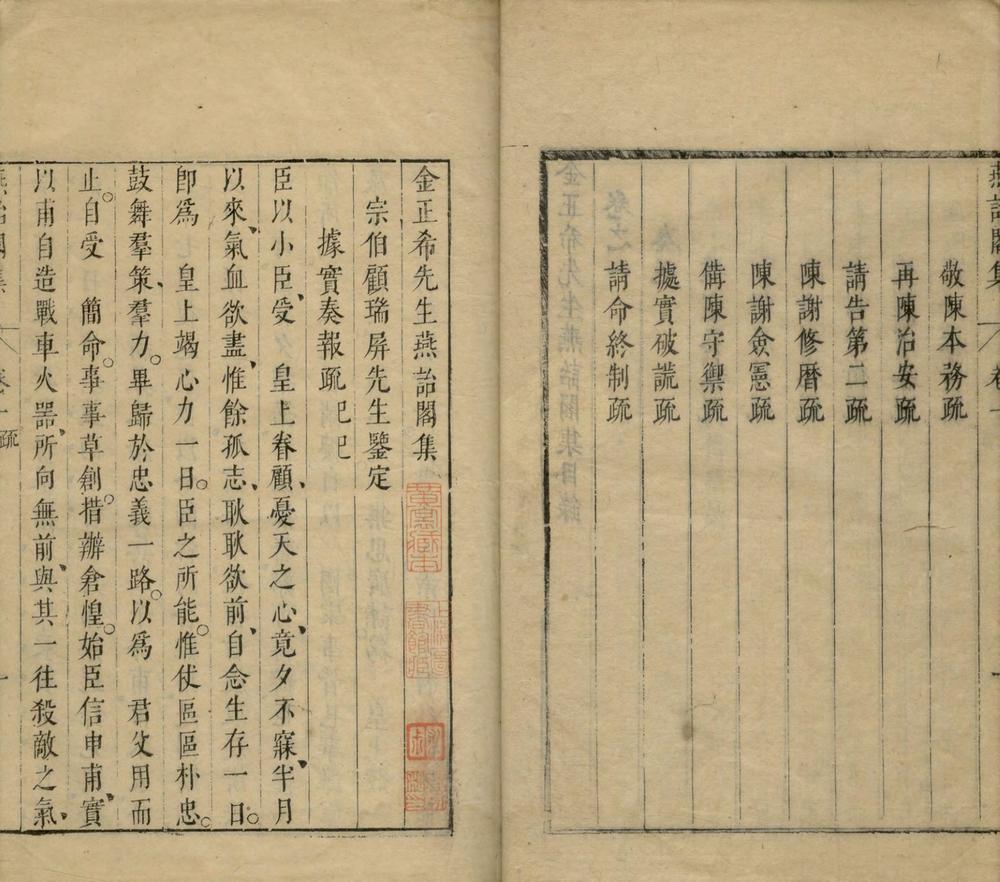 燕詒閣集 卷一
敬陳本務疏
再陳治安疏
請告第二疏
陳謝修曆疏
陳謝僉憲疏
備陳守禦疏
據實破謊疏
請命終制疏
金正希先生燕詒閣集
宗伯顧瑞屏先生鑒定
據實奏報疏 己巳
臣以小臣、受 皇上眷顧、憂天之心、竟夕不寐、半月
以來、氣血欲盡、惟餘孤志、耿耿欲前、自念生存一日。
卽爲 皇上竭心力一日。臣之所能。惟仗區區朴忠。
鼓舞羣策、羣力。畢歸於忠義一路。以爲 君父用而
止。自受 簡命。事事草創。措辦倉惶。始臣信申甫、實
以甫自造戰車火器、所向無前、與其一往殺敵之氣、
燕詒閣集 卷一 疏 一